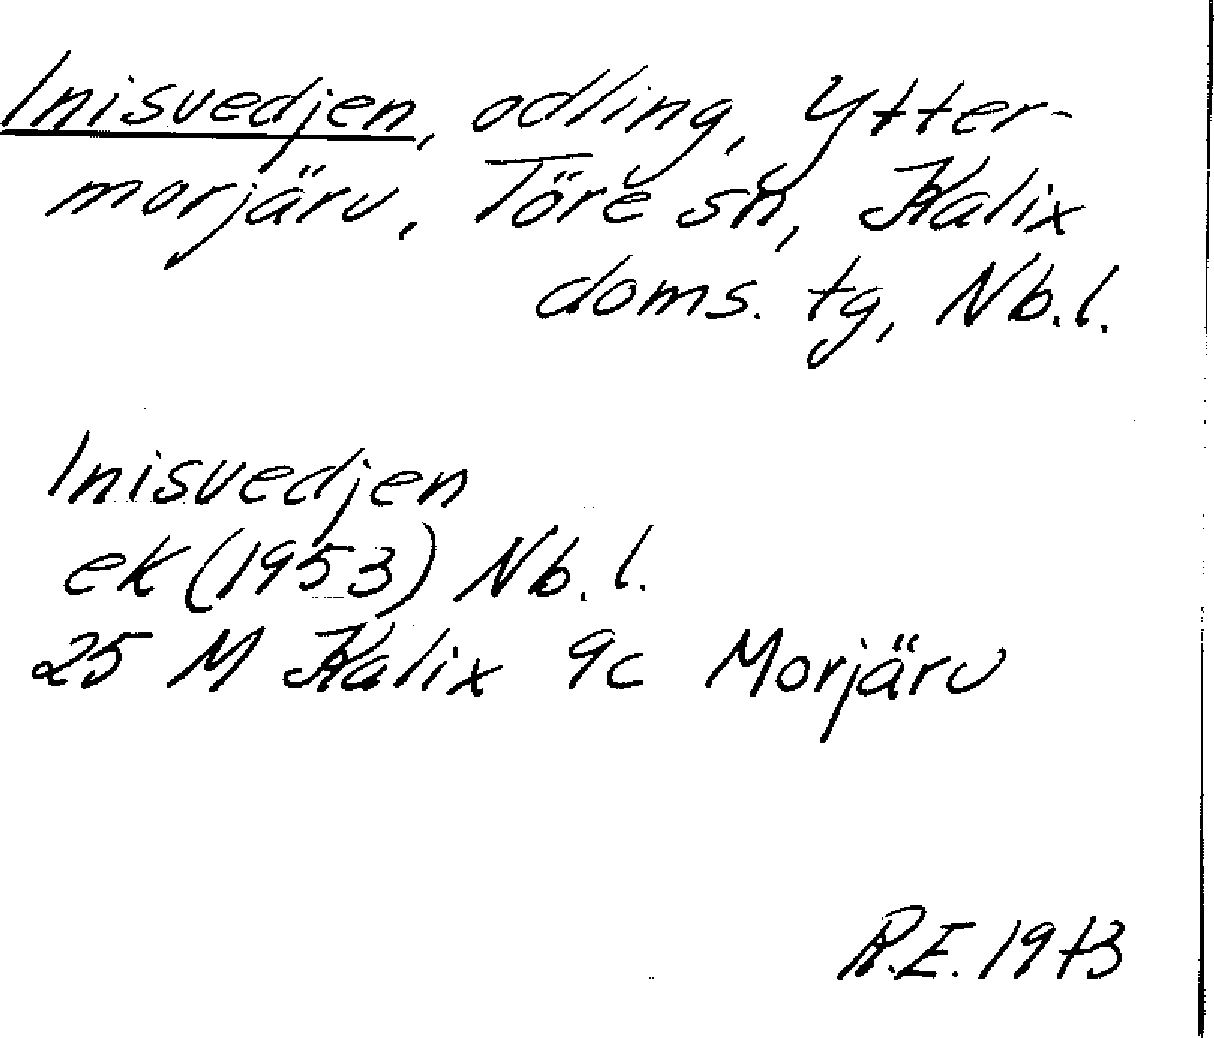 Inisvedjen, odling, Ytter-
morjärv, Töre sn, Kalix
doms. tg, Nb.l.
Inisvedjen
ek (1953) Nb.l.
25 M Kalix 9c Morjärv
R.E. 1973